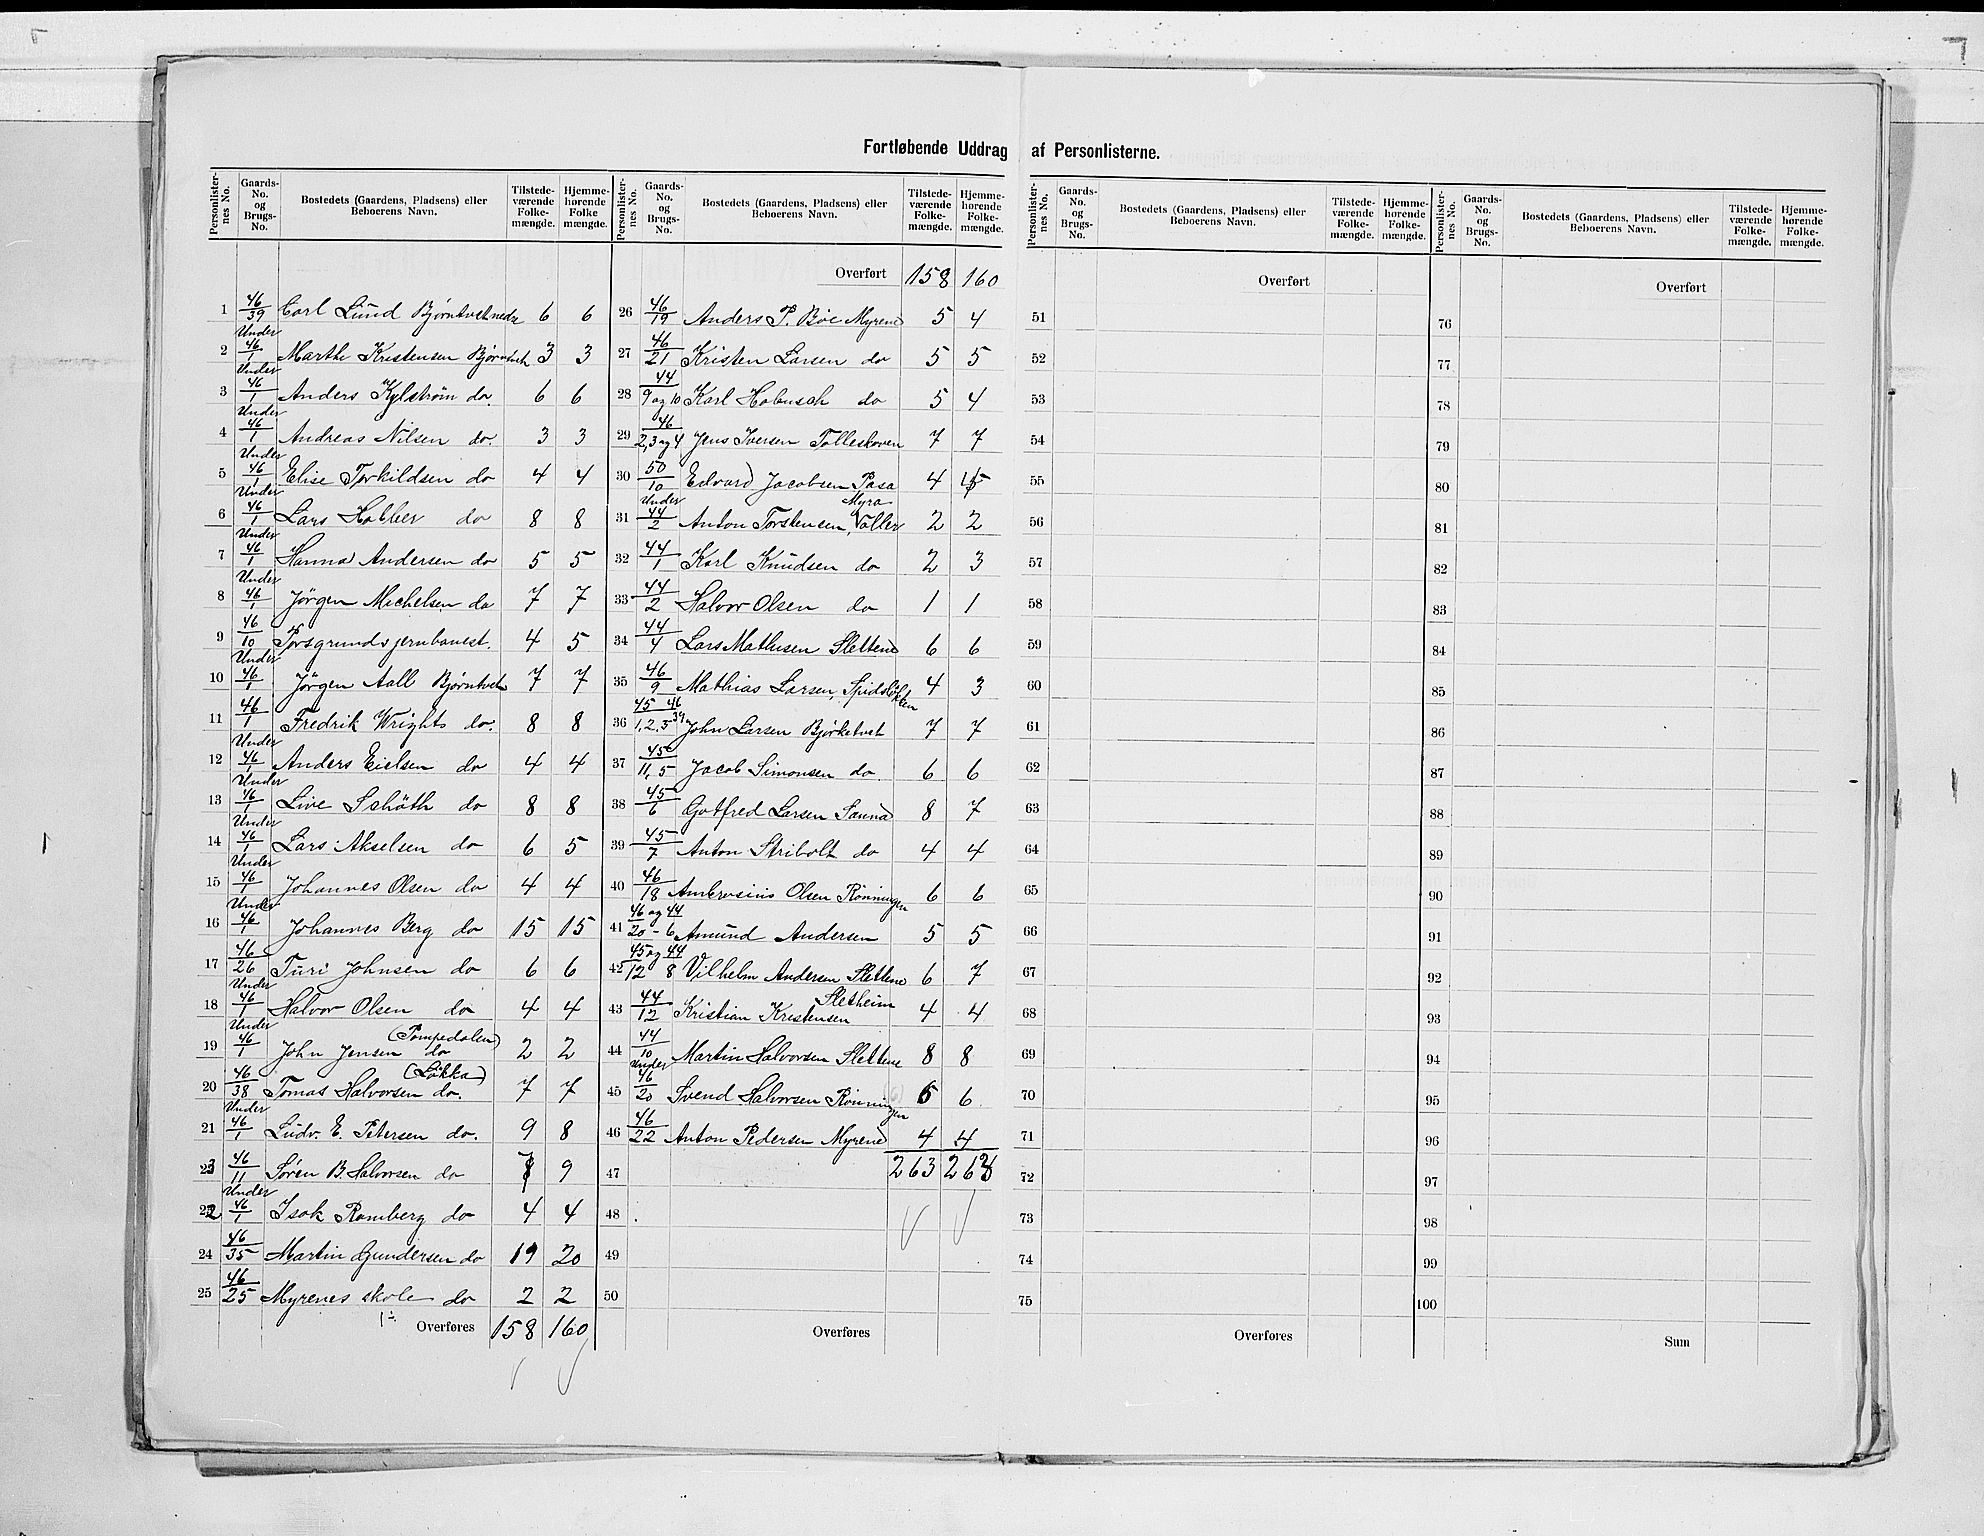 Fortløbende Uddrag af Personlisterne.
Personlister-nes No. Gaards-No. og Brugs-No. Bostedets (Gaardens, Pladsens) eller Beboerens Navn. Tilstede-værende Folke-mængde. Hjemme-hørende Folke mængde.
1 46/39 Carl Lund Bjørntvet nedre 6 6
2 Under 46/1 Marthe Kristensen Bjørntvet 3 3
3 Under 46/1 Anders Kylstrøm do. 6 6
4 Under 46/1 Andreas Nilsen do. 3 3
5 Under 46/1 Elise Terkildsen do 4 4
6 Under 46/1 Lars Holber do 8 8
7 Under 46/1 Hanna Andersen do 5 5
8 Under 46/1 Jørgen Michelsen do 7 7
9 46/10 Porsgrunds jernbanest. 4 5
10 Under 46/1 Jørgen Aall Bjørntvet 7 7
11 46/1 Fredrik Wrights do. 8 8
12 Under 46/1 Anders Eielsen do 4 4
13 Under 46/1 Live Schöth do 8 8
14 Under 46/1 Lars Akselsen do 6 5
15 Under 46/1 Johannes Olsen do 4 4
16 Under 46/1 Johannes Berg do 15 15
17 46/26 Turi Johnsen do 6 6
18 Under 46/1 Halvor Olsen do 4 4
19 Under 46/1 John Jensen do (Pompedalen) 2 2
20 46/38 Tomas Halvorsen do. (Løkka) 7 7
21 Under 46/1 Ludv. E. Petersen do. 9 8
23 46/11 Søren B. Halvorsen do 9
22 Under 46/1 Isak Romberg do 4 4
24 46/35 Martin Gundersen do 19 20
25 46/25 Myrenes skole do 2 2
Overføres 158 160
Personlister-nes No. Gaards-No. og Brugs-No. Bostedets (Gaardens, Pladsens) eller Beboerens Navn. Tilstede-værende Folke-mængde. Hjemme-hørende Folke-mængde.
Overført 158 160
26 46/19 Anders P. Bøe Myrene 5 4
27 46/21 Kristen Larsen do 5 5
28 44/9 og 10 Karl Hobusch do 5 4
29 46/2, 3 og 4 Jens Iversen Tolleskoven 7 7
30 50/10 Edvard Jacobsen Pasa 4 5
31 Under 44/2 Anton Torstensen, Myra Valler 2 2
32 44/1 Karl Knudsen do 2 3
33 44/2 Halvor Olsen do 1 1
34 44/4 Lars Mathisen Slettene 6 6
35 46/9 Mathias Larsen, Spidsløkken 4 3
36 45/1, 2, 3 46/39 John Larsen Bjørketvet 7 7
37 45/11, 5 Jacob Simonsen do. 6 6
38 45/6 Gotfred Larsen Sanna 8 7
39 45/7 Anton Stribolt do 4 4
40 46/18 Ambrosius Olsen Rønningen 6 6
41 46 og 44/20 - 6 Amund Andersen 5 5
42 45 og 44/12 8 Vilhelm Andersen Slettene 6 7
43 44/12 Kristian Kristensen Sletheim 4 4
44 44/10 Martin Halvorsen Slettene 8 8
45 Under 46/20 Svend Halvorsen Rønningen 6 6
46 46/22 Anton Pedersen Myrene 4 4
47 263 268
48
49
50
Overføres
Personlister-nes No. Gaards-No. og Brugs-No. Bostedets (Gaardens, Pladsens) eller Beboerens Navn. Tilstede-værende Folke-mængde. Hjemme-hørende Folke-mængde.
Overført
51
52
53
54
55
56
57
58
59
60
61
62
63
64
65
66
67
68
69
70
71
72
73
74
75
Overføres
Personlister-nes No. Gaards-No. og Brugs-No. Bostedets (Gaardens, Pladsens) eller Beboerens Navn. Tilstede-værende Folke-mængde. Hjemme-hørende Folke-mængde.
Overført
76
77
78
79
80
81
82
83
84
85
86
87
88
89
90
91
92
93
94
95
96
97
98
99
100
Sum